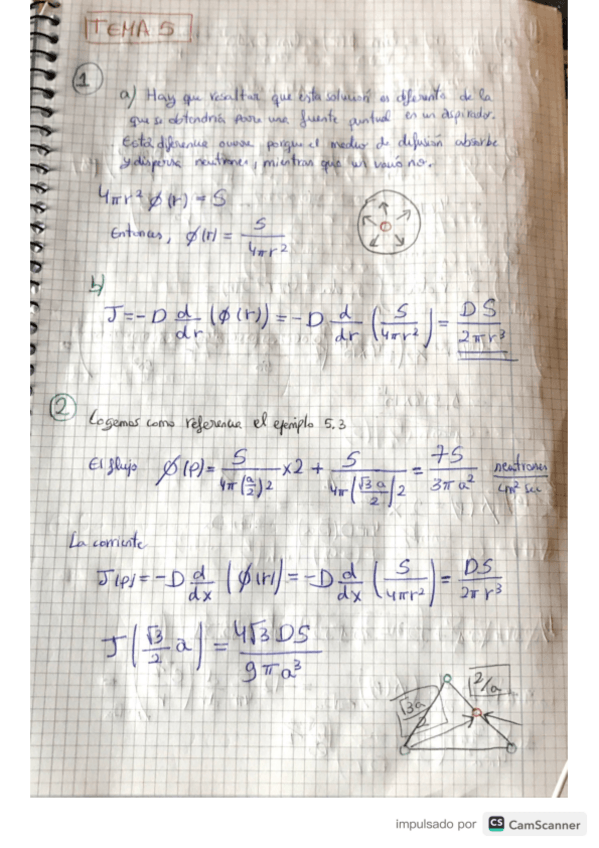 TEMA 5
1
a) Hay que resaltar que esta solución es diferente de la
que se obtendría para una fuente puntual en un
Esta diferencia ocurre porque el medio de difusión absorbe
y dispersa neutrones, mientras que un vacío no.
4πr² φ(r) = S
Entonces, φ(r) = S / 4πr²
b)
J = -D d/dr (φ(r)) = -D d/dr (S / 4πr²) = DS / 2πr³
2
Cogemos como referencia el ejemplo 5.3
El flujo φ(P) = S / 4π(a/2)² x2 + S / 4π(√3a/2)² = 7S / 3πa² neutrones / cm² seg
La corriente
J(P) = -D d/dx (φ(r)) = -D d/dx (S / 4πr²) = DS / 2πr³
J(√3/2 a) = 4√3 DS / 9πa³
2/a
√3a/2
impulsado por CS CamScanner